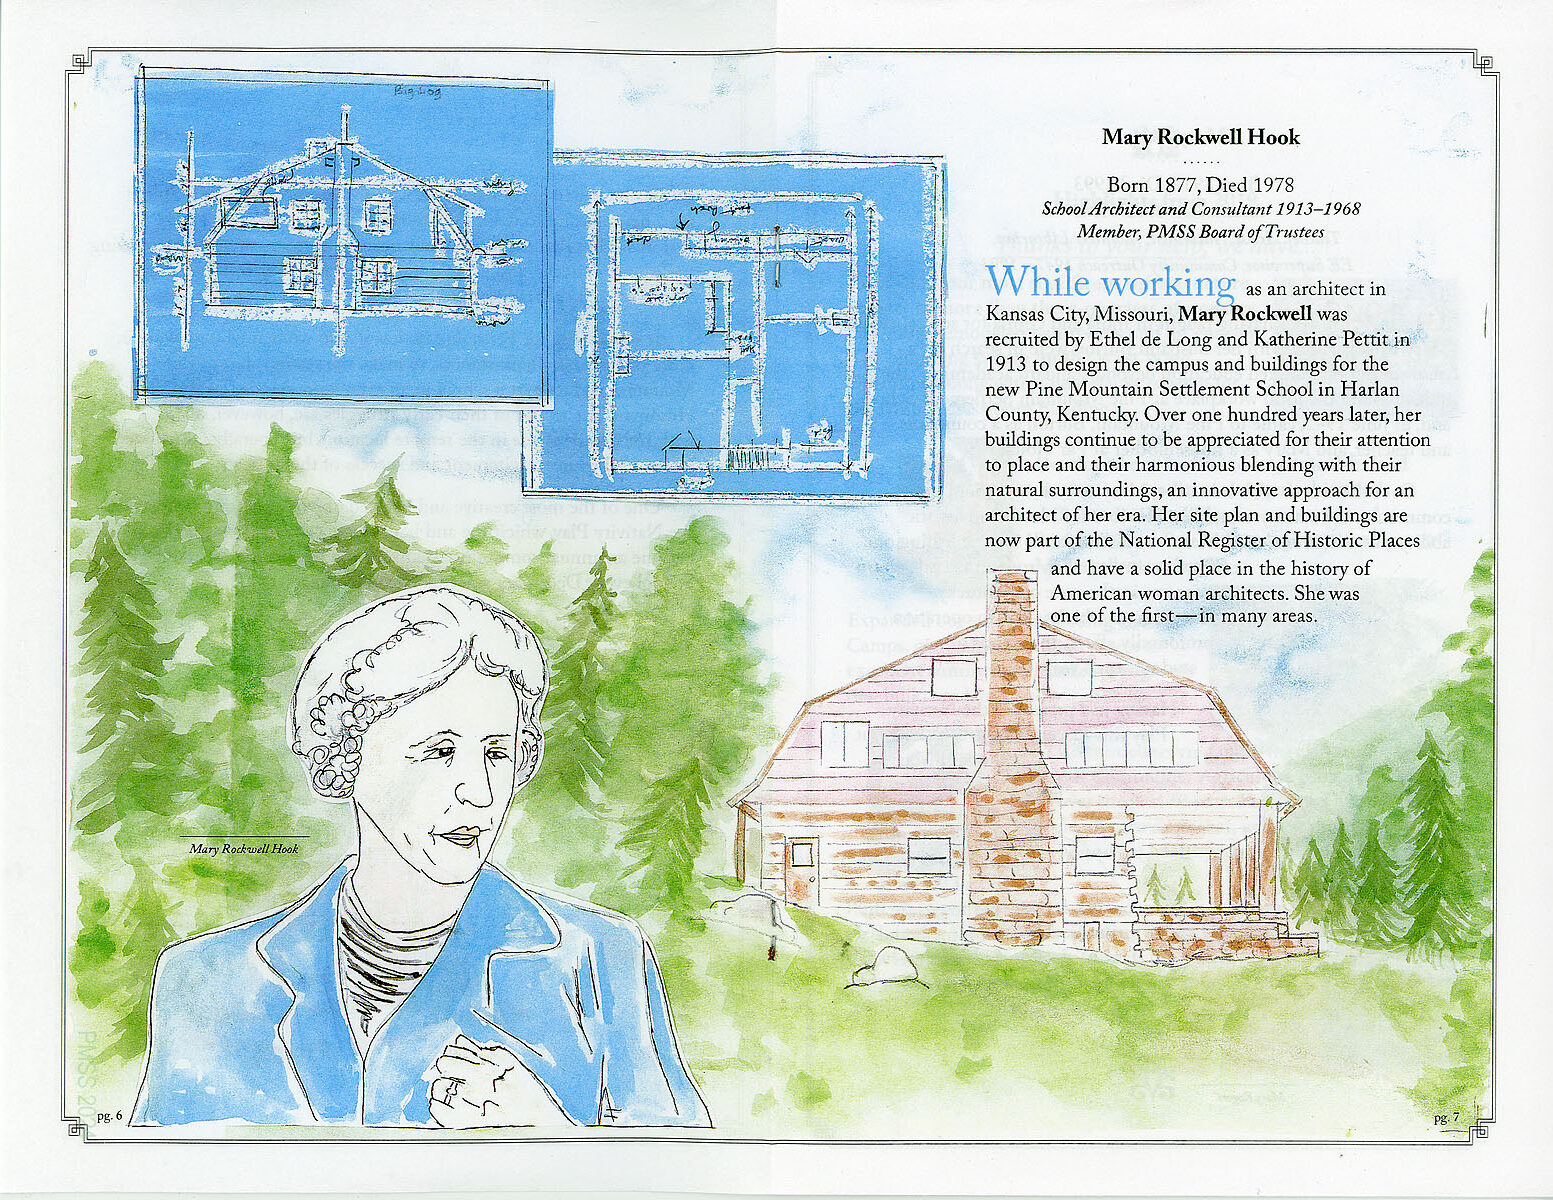 Big Log
Mary Rockwell Hook
Born 1877, Died 1978
School Architect and Consultant 1913–1968
Member, PMSS Board of Trustees
While working as an architect in
Kansas City, Missouri, Mary Rockwell was
recruited by Ethel de Long and Katherine Pettit in
1913 to design the campus and buildings for the
new Pine Mountain Settlement School in Harlan
County, Kentucky. Over one hundred years later, her
buildings continue to be appreciated for their attention
to place and their harmonious blending with their
natural surroundings, an innovative approach for an
architect of her era. Her site plan and buildings are
now part of the National Register of Historic Places
and have a solid place in the history of
American woman architects. She was
one of the first—in many areas.
Mary Rockwell Hook
pg. 6
pg. 7